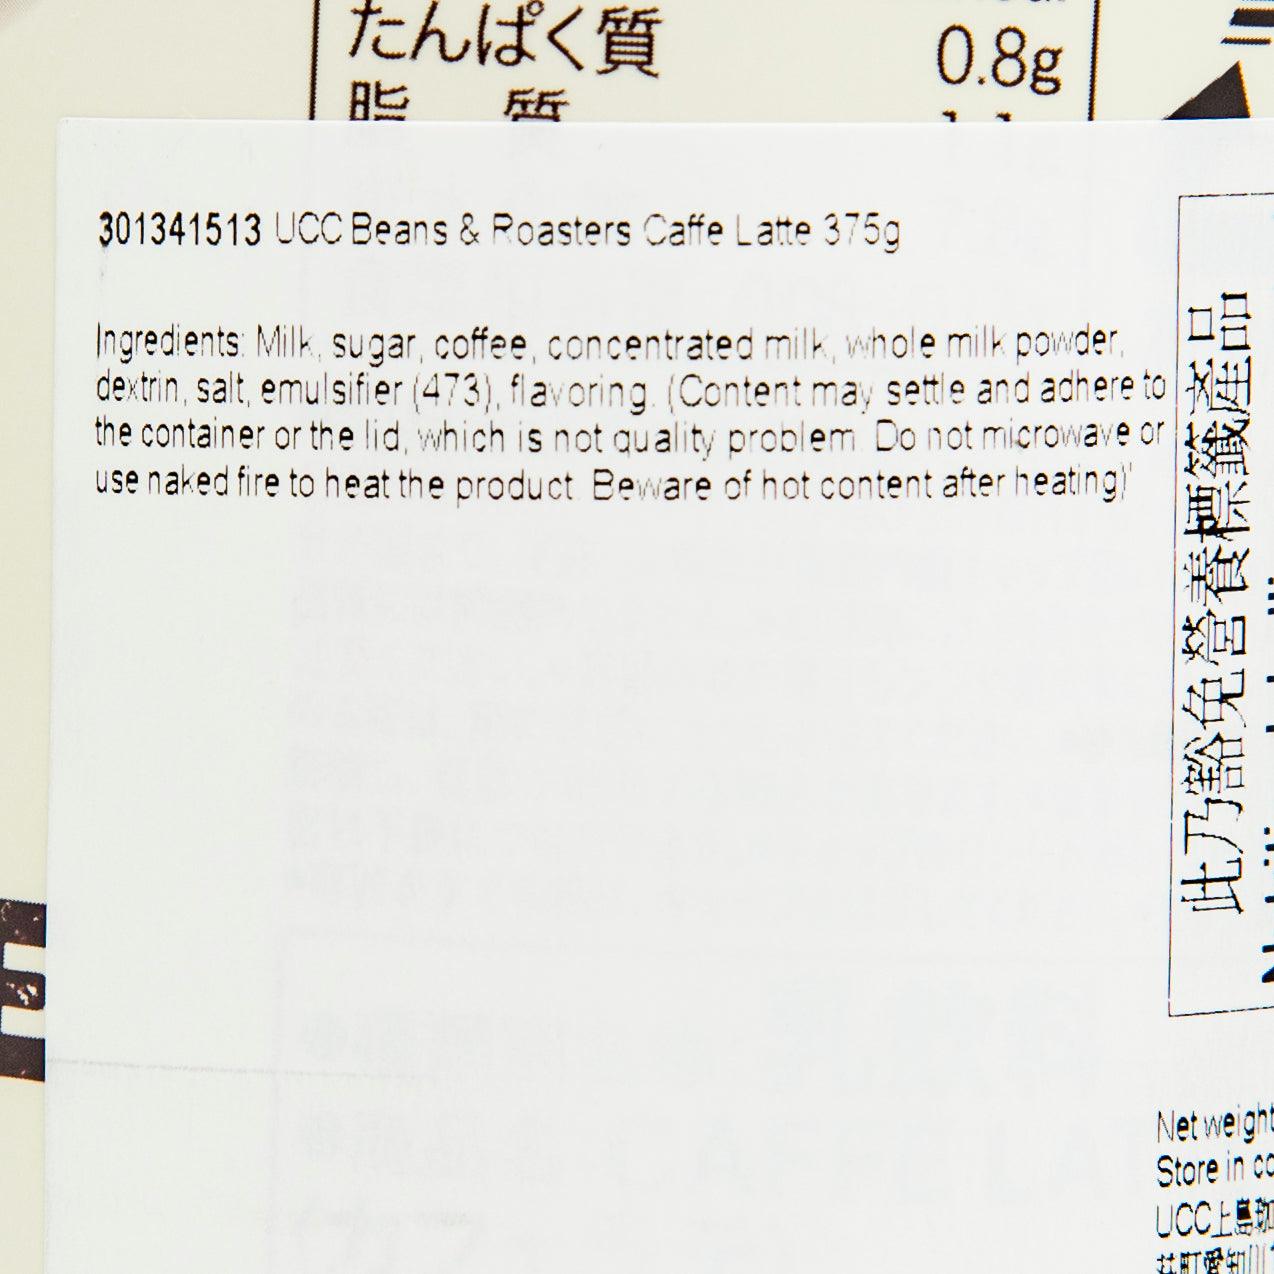 たんぱく質 0.8g
脂 質
301341513 UCC Beans & Roasters Caffe Latte 375g
Ingredients: Milk, sugar, coffee, concentrated milk, whole milk powder,
dextrin, salt, emulsifier (473), flavoring. (Content may settle and adhere to
the container or the lid, which is not quality problem. Do not microwave or
use naked fire to heat the product. Beware of hot content after heating)'
此乃豁免營養標籤產品
Net weight
Store in
UCC上島珈